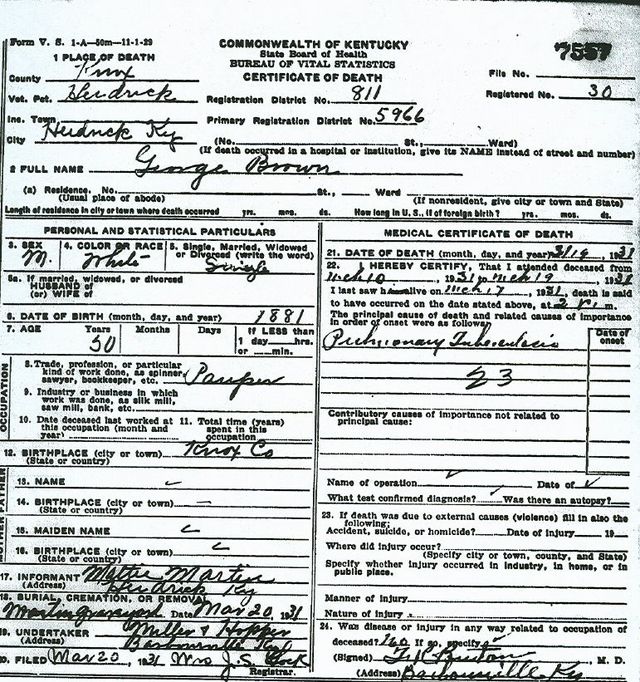 Form V. S. 1-A—50m—11-1-29
COMMONWEALTH OF KENTUCKY
State Board of Health
BUREAU OF VITAL STATISTICS
CERTIFICATE OF DEATH
7557
1 PLACE OF DEATH
County Knox
File No.
Vot. Pct. Heidrick
Registration District No. 811
Registered No. 30
Inc. Town
Primary Registration District No. 5966
City Heidrick Ky
(No. St., Ward)
(If death occurred in a hospital or institution, give its NAME instead of street and number)
2 FULL NAME George Brown
(a) Residence. No. St., Ward.
(Usual place of abode) (If nonresident, give city or town and State)
Length of residence in city or town where death occurred yrs. mos. ds. How long in U. S., if of foreign birth? yrs. mos. ds.
PERSONAL AND STATISTICAL PARTICULARS
3. SEX M.
4. COLOR OR RACE White
5. Single, Married, Widowed or Divorced (write the word) Single
5a. If married, widowed, or divorced
HUSBAND of
(or) WIFE of
6. DATE OF BIRTH (month, day, and year) 1881
7. AGE Years 50 Months Days If LESS than
1 day......hrs.
or ......min.
OCCUPATION
8. Trade, profession, or particular
kind of work done, as spinner,
sawyer, bookkeeper, etc. Pauper
9. Industry or business in which
work was done, as silk mill,
saw mill, bank, etc.
10. Date deceased last worked at
this occupation (month and
year)
11. Total time (years)
spent in this
occupation
12. BIRTHPLACE (city or town) Knox Co
(State or country)
FATHER
13. NAME
14. BIRTHPLACE (city or town)
(State or country)
MOTHER
15. MAIDEN NAME
16. BIRTHPLACE (city or town)
(State or country)
17. INFORMANT Mattie Martin
(Address) Heidrick Ky
18. BURIAL, CREMATION, OR REMOVAL
Martin graveyard Date Mar 20 1931
19. UNDERTAKER Miller & Hopper
(Address) Barbourville Ky
20. FILED Mar 20, 1931 Mrs J. S.
Registrar.
MEDICAL CERTIFICATE OF DEATH
21. DATE OF DEATH (month, day, and year) 3/19, 1931
22. I HEREBY CERTIFY, That I attended deceased from
Mch 10, 1931 to Mch 19, 1931
I last saw h alive on Mch 17, 1931, death is said
to have occurred on the date stated above, at 2
The principal cause of death and related causes of importance
in order of onset were as follows:
Date of onset
Pulmonary Tuberculosis
23
Contributory causes of importance not related to
principal cause:
Name of operation Date of
What test confirmed diagnosis? Was there an autopsy?
23. If death was due to external causes (violence) fill in also the
following:
Accident, suicide, or homicide? Date of injury 19
Where did injury occur?
(Specify city or town, county, and State)
Specify whether injury occurred in industry, in home, or in
public place.
Manner of injury
Nature of injury
24. Was disease or injury in any way related to occupation of
deceased? No If so, specify
(Signed) , M. D.
(Address) Barbourville Ky